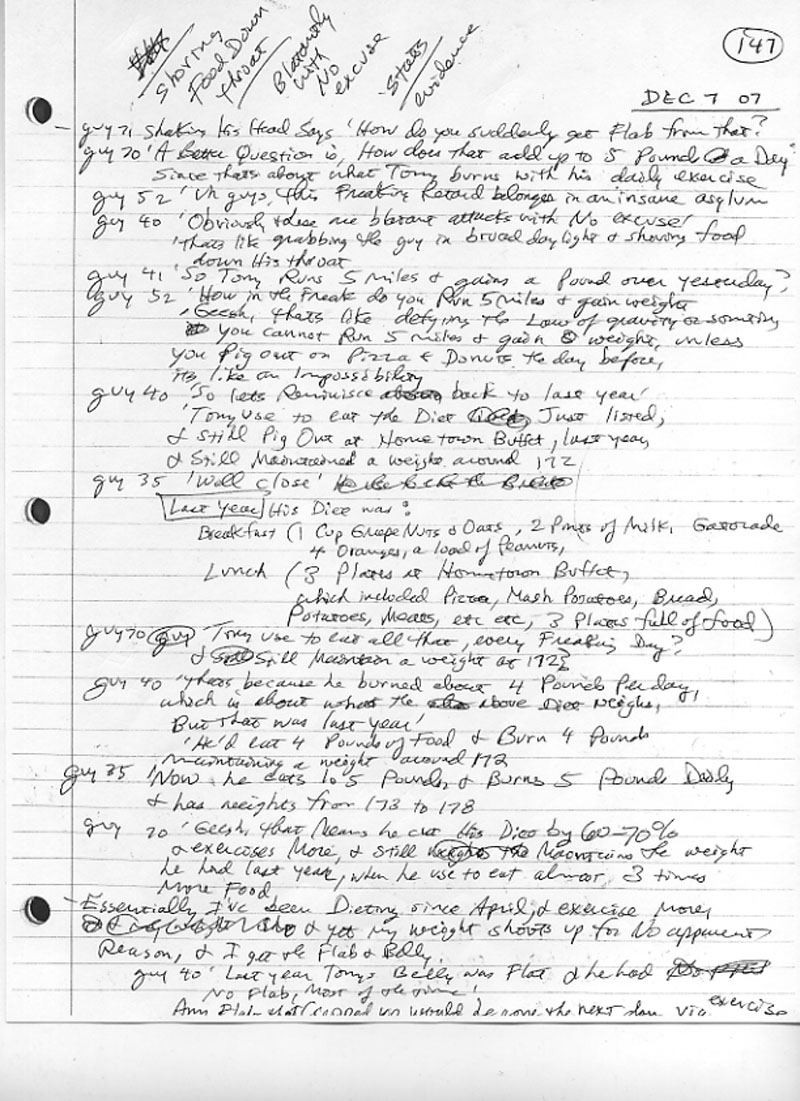 147
Shoving
Food Down
throat
Blatantly
with
No
excuse
Stats
evidence
DEC 7 07
- guy 71 Shaking His Head Says 'How do you suddenly get Flab from that?
guy 70 'A Better Question is, How does that add up to 5 Pounds a Day'
Since thats about what Tony burns with his daily exercise
guy 52 'Uh guys, this Freaking Retard belongs in an insane asylum
guy 40 'Obviously these are blatant attacks with No excuse'
'thats like grabbing the guy in broad daylight & shoving food
down His throat
guy 41 'So Tony Runs 5 miles & gains a Pound over yesterday?
guy 52 'How in the Freak do you Run 5 miles & gain weight
'Geesh, thats like defying the Law of gravity or something
you cannot Run 5 miles & gain weight, unless
you Pig out on Pizza & Donuts the day before,
its like an Impossibility
guy 40 'So lets Reminisce back to last year'
'Tony use to eat the Diet Just listed,
& Still Pig Out at Hometown Buffet, last year,
& Still Maintained a weight around 172
guy 35 'Well close'
Last Year His Diet was:
Breakfast (1 Cup Grape Nuts & Oats, 2 Pints of Milk, Gatorade
4 Oranges, a load of Peanuts,
Lunch (3 Plates at Hometown Buffet,
which included Pizza, Mash Potatoes, Bread,
Potatoes, Meats, etc etc, 3 Plates full of food)
guy 70 Tony use to eat all that, every Freaking Day?
& Still Maintain a weight at 172?
guy 40 'thats because he burned about 4 Pounds Per day,
which is about what the above Diet weighs,
But that was last year'
'He'd eat 4 Pounds of Food & Burn 4 Pounds
Maintaining a weight around 172
guy 35 'Now he eats 1.5 Pounds, & Burns 5 Pounds Daily
& has weights from 173 to 178
guy 70 'Geesh, that Means he cut His Diet by 60-70%
& exercises More, & still Maintains the weight
he had last year, when he use to eat almost 3 times
More Food
- Essentially I've been Dieting since April, & exercise More,
& yet my weight shoots up for No apparent
Reason, & I get the Flab & Belly.
guy 40 'Last year Tonys Belly was Flat & he had
No Flab, Most of the time'
Any Flab that cropped up would be gone the next day via exercise